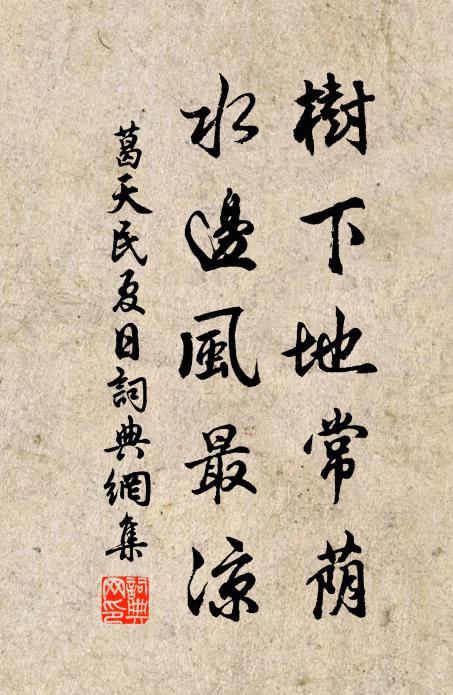 樹下地常蔭
水邊風最涼
葛天民夏日詞典網集
詞典網印